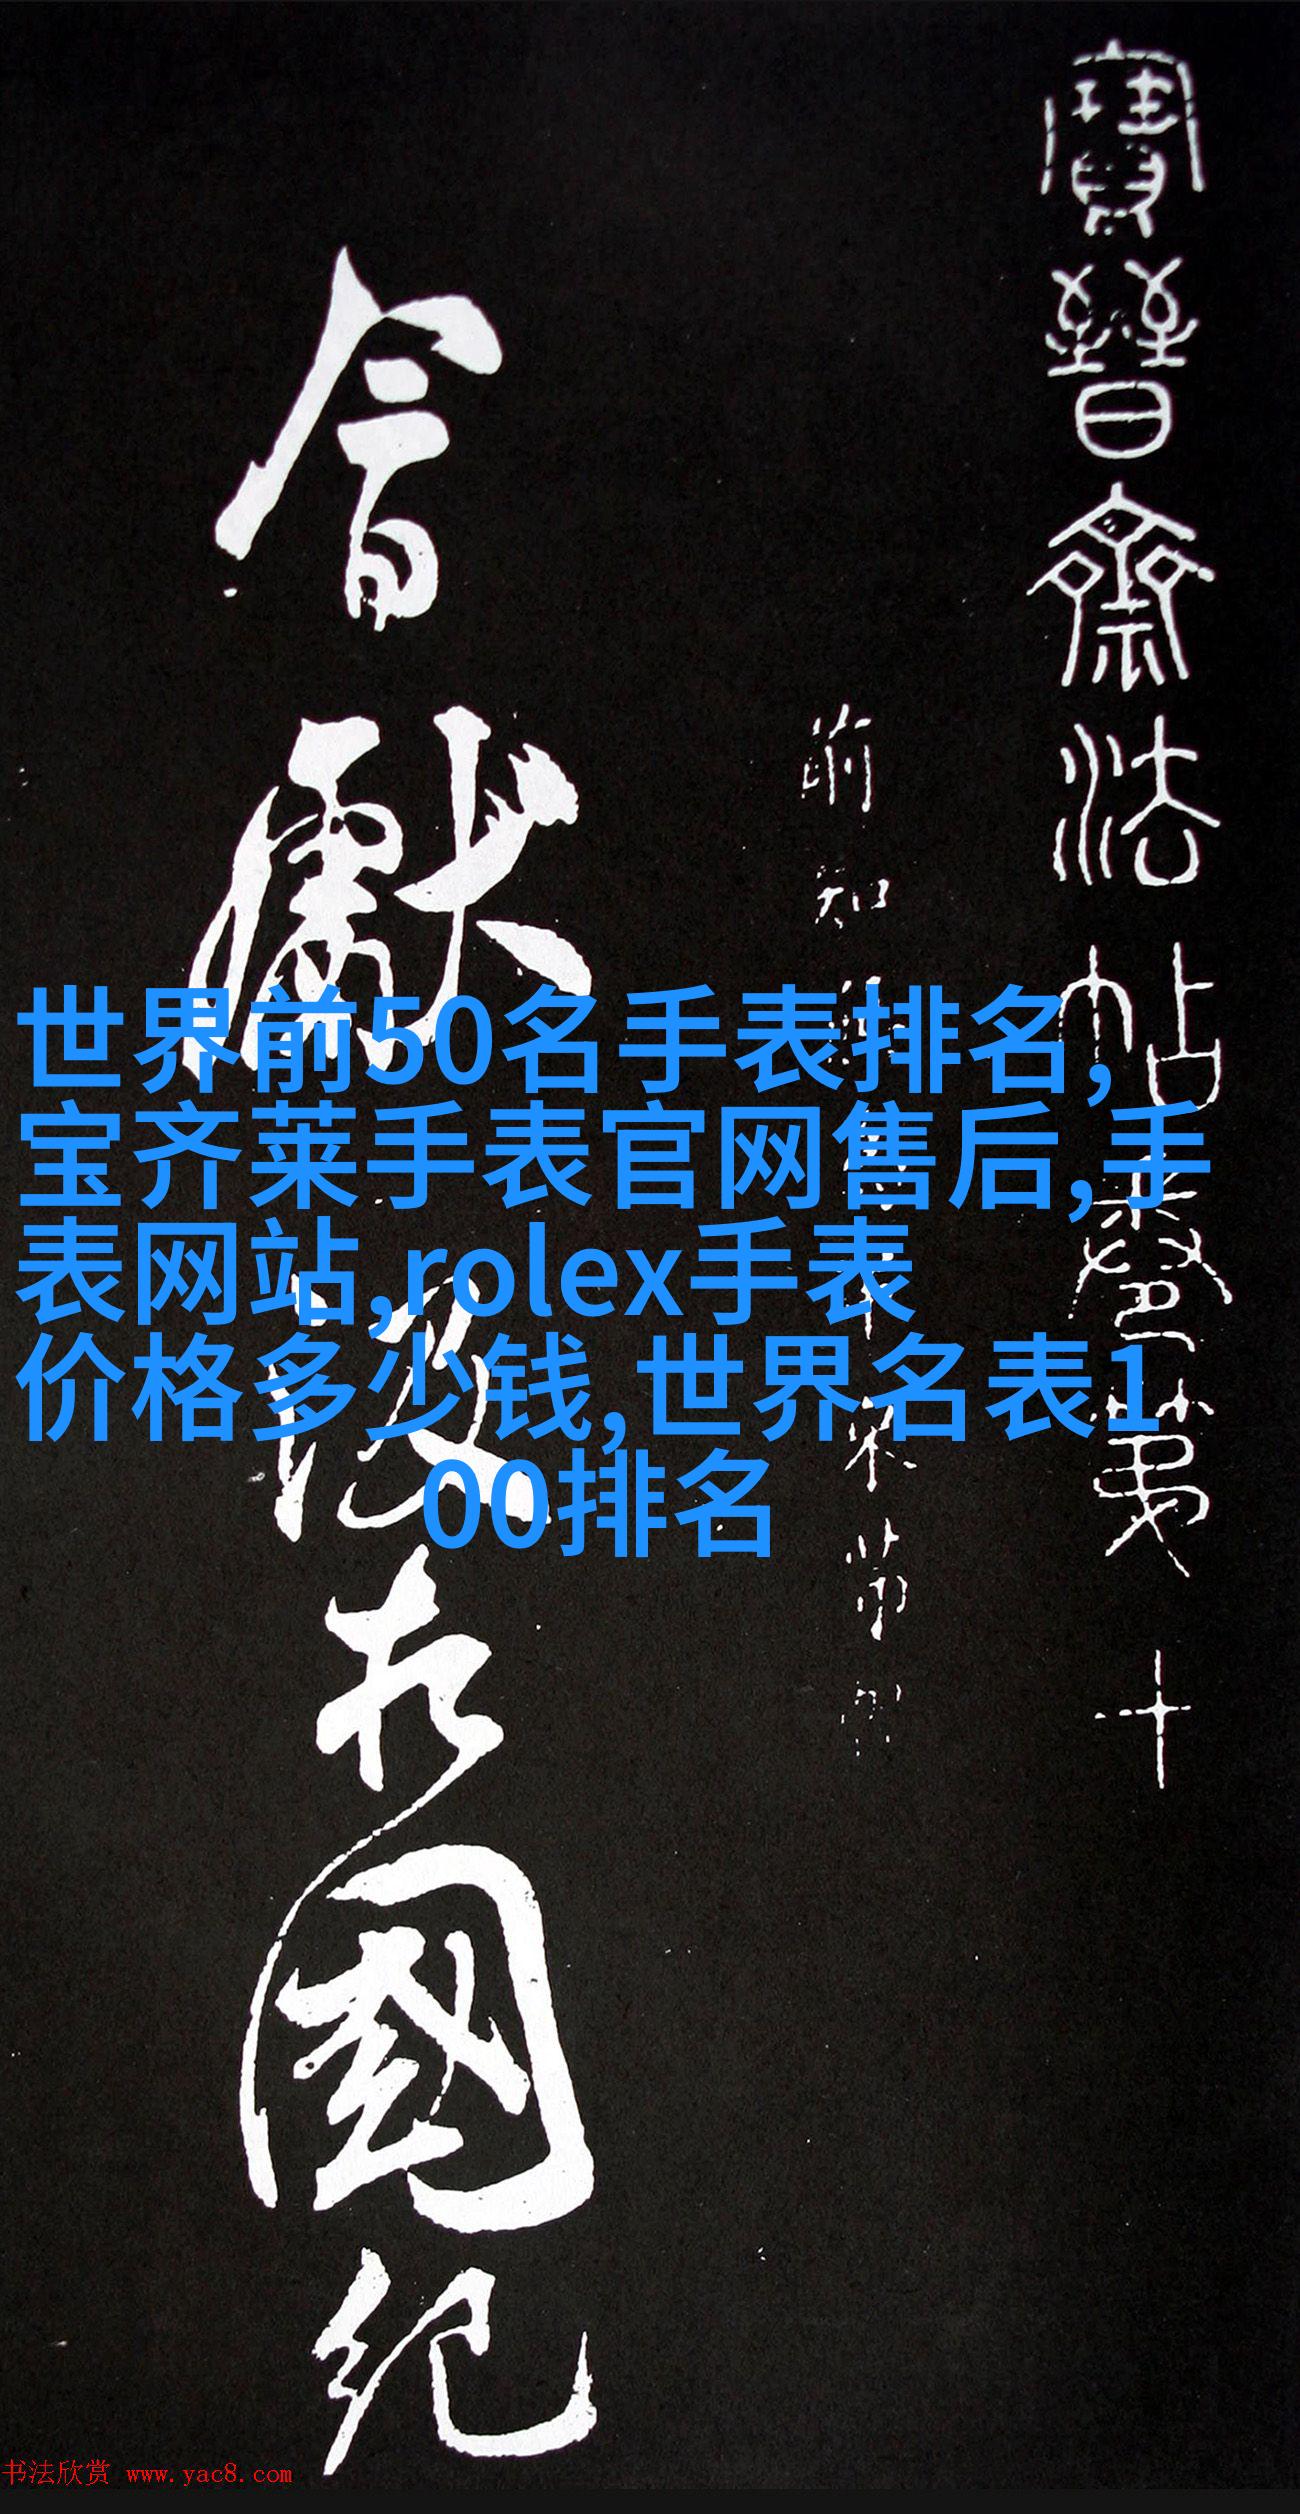 寶晉齋法帖卷第十
前知
國紀
世界前50名手表排名,
宝齐莱手表官网售后,手
表网站,rolex手表
价格多少钱,世界名表1
00排名
书法欣赏 www.yac8.com